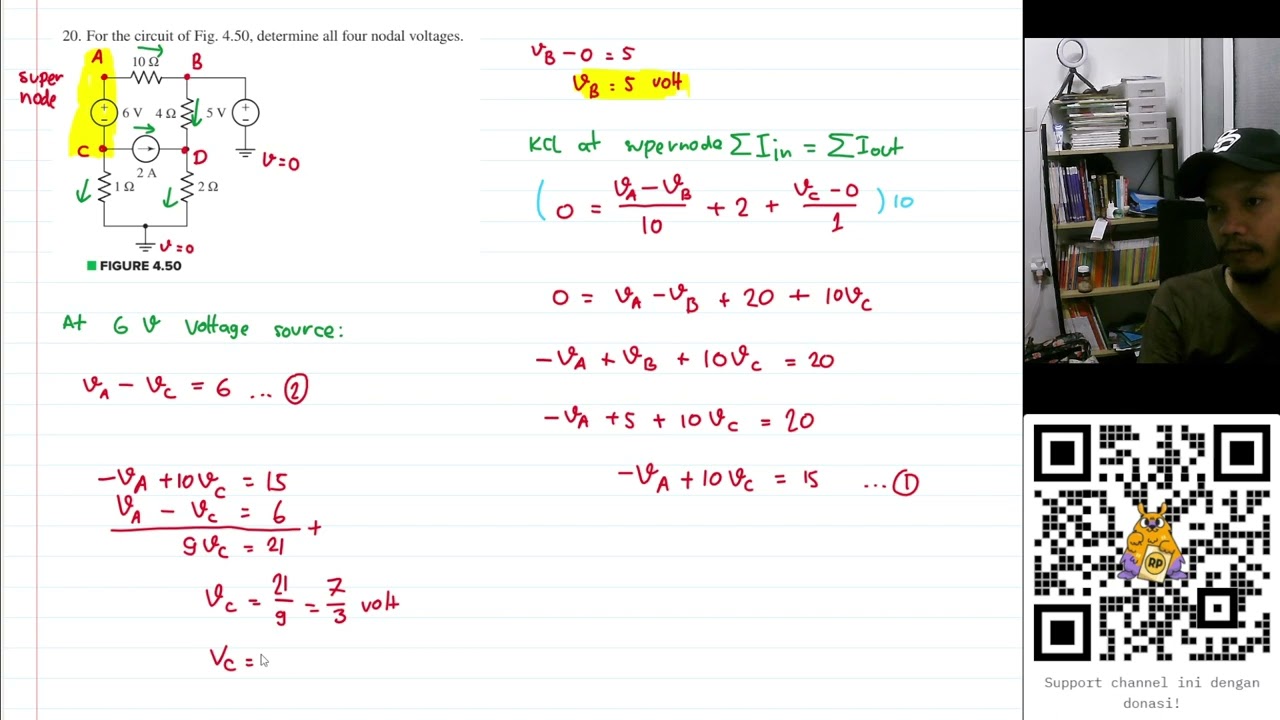 20. For the circuit of Fig. 4.50, determine all four nodal voltages.
A
10 Ω
B
super
node
6 V
4 Ω
5 V
C
2 A
D
v=0
1 Ω
2 Ω
v=0
FIGURE 4.50
At 6 V voltage source:
v_A - v_C = 6 ... ②
-v_A + 10v_C = 15
v_A - v_C = 6
+
9v_C = 21
v_C = 21/9 = 7/3 volt
V_C =
v_B - 0 = 5
v_B = 5 volt
KCL at supernode ΣI_in = ΣI_out
(0 = (v_A - v_B)/10 + 2 + (v_C - 0)/1) 10
0 = v_A - v_B + 20 + 10v_C
-v_A + v_B + 10v_C = 20
-v_A + 5 + 10v_C = 20
-v_A + 10v_C = 15 ... ①
RP
Support channel ini dengan
donasi!